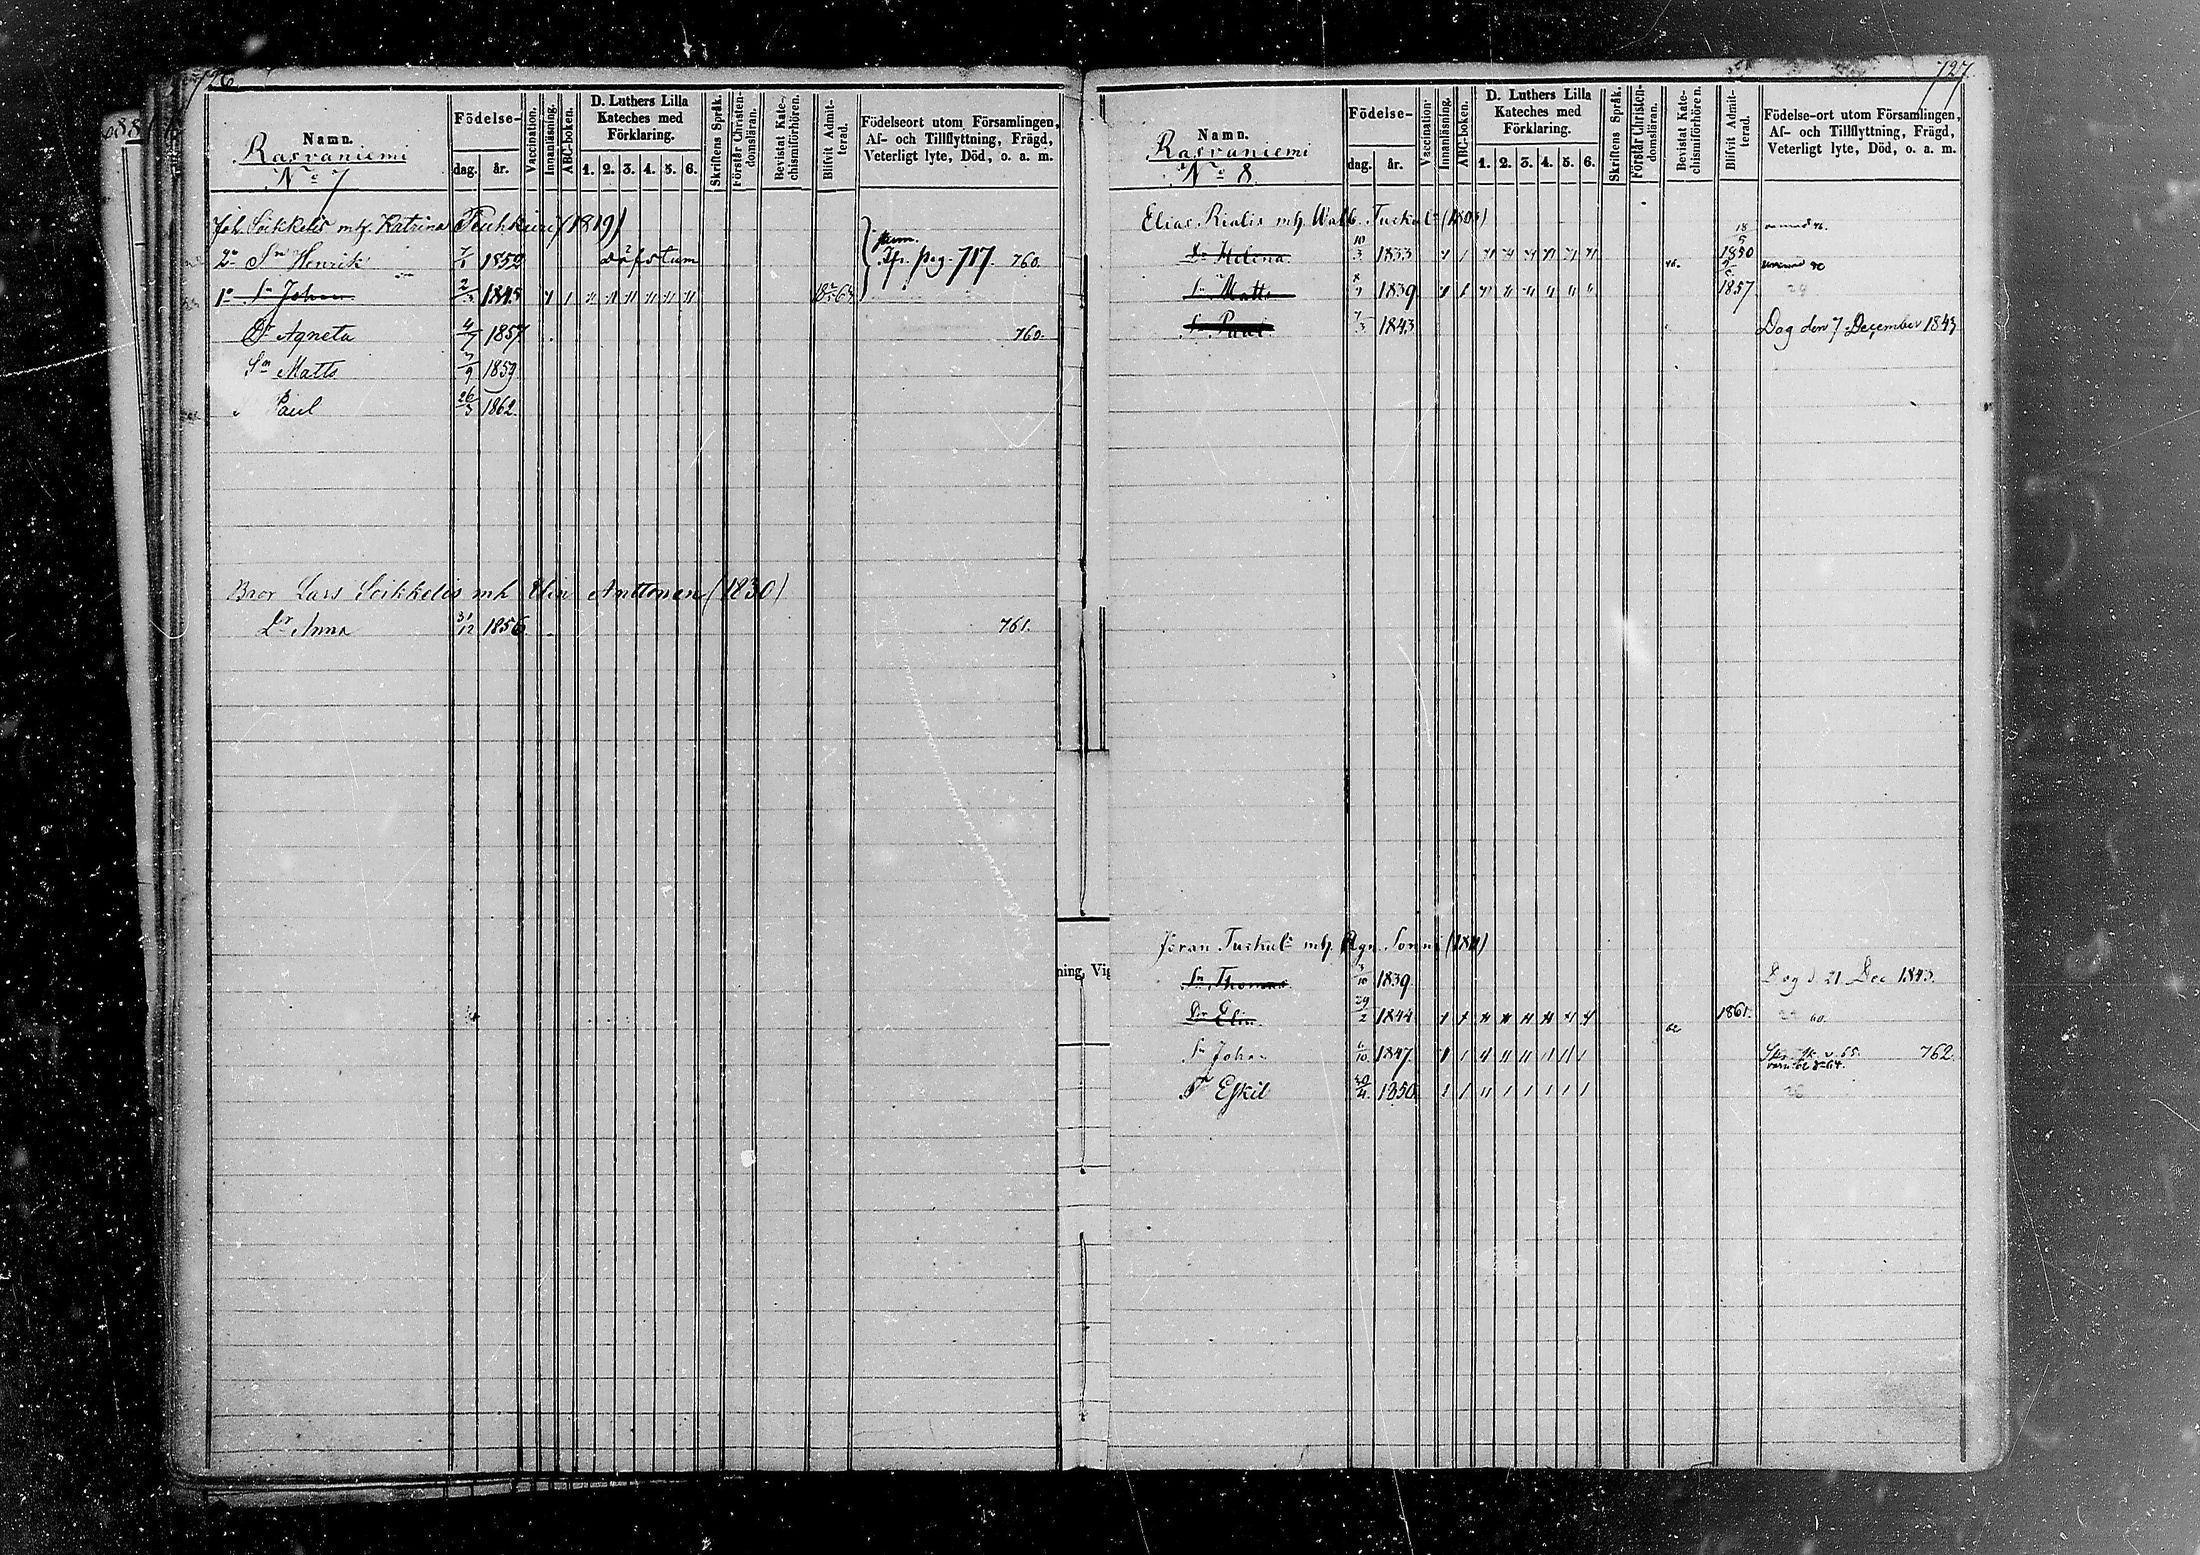 726
Namn.
Rasvaniemi
No 7
Födelse-
dag. år.
Vaccination.
Innanläsning.
ABC-boken.
D. Luthers Lilla
Kateches med
Förklaring.
1. 2. 3. 4. 5. 6.
Skriftens Språk.
Förstår Christen-
domsläran.
Bevistat Kate-
chismiförhören.
Blifvit Admit-
terad.
Födelseort utom Församlingen,
Af- och Tillflyttning, Frägd,
Veterligt lyte, Död, o. a. m.
Joh. Soikkelis mh. Katrina Peuhkuri (1819)
2o Sn Henrik 7/1 1852 döfstum Tfr. pag. 717. 760.
1o Sn Johan 2/3 1845
Dr Agneta 4/7 1857 760.
Sn Matts 7/9 1859
Paul 26/3 1862
Bror Lars Soikkelis mh Elin Anttonen (1830)
Dr Anna 31/12 1856 761.
727
Namn.
Rasvaniemi
No 8
Födelse-
dag. år.
Vaccination
Innanläsning.
ABC-boken.
D. Luthers Lilla
Kateches med
Förklaring.
1. 2. 3. 4. 5. 6.
Skriftens Språk.
Förstår Christen-
domsläran.
Bevistat Kate-
chismiförhören.
Blifvit Admit-
terad.
Födelse-ort utom Församlingen,
Af- och Tillflyttning, Frägd,
Veterligt lyte, Död, o. a. m.
Elias Rialis mh. Walb. Tuskul
Dr Helena 10/3 1833 18/5 1850
Sn Matts 1839 1857.
Sn Paul 7/3 1843 Dog den 7 December 1843
ning, Vig
Jöran Tuskul mh. Agn. Sonni
Sn Thomas 1839 Dog d. 21 Dec 1843.
Dr Elin 29/2 1844 1861.
Sn Johan 6/10 1847 762.
Sn Eskil 20/4 1850